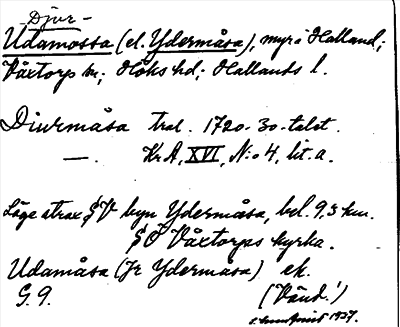 -Djur-
Udamossa (el. Ydermåsa), myr i Halland;
Våxtorp sn; Höks hd; Hallands l.
Diurmåsa trol. 1720-30-talet.
— . Kr A, XVI, N:o 4, lit. a.
Läge strax SV byn Ydermåsa, bel. 9,3 km.
SO Våxtorps kyrka.
Udamåsa (Jr Ydermåsa) ek.
G. 9. (Vänd!)
1937.